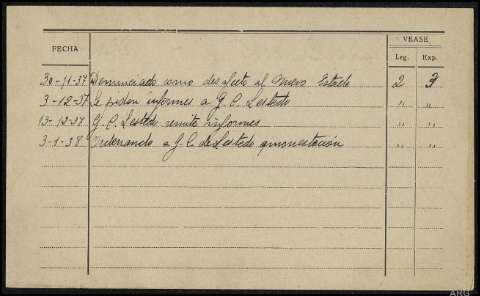 VEASE
FECHA
Leg. Exp.
30-11-37 Denunciado como desafecto al Nuevo Estado 2 3
3-12-37 Se piden informes a G. C. Sestado " "
13-12-37 G. C. Sestado remite informes " "
3-1-38 Ordenando a G. C. de Sestado amonestación " "
ARG